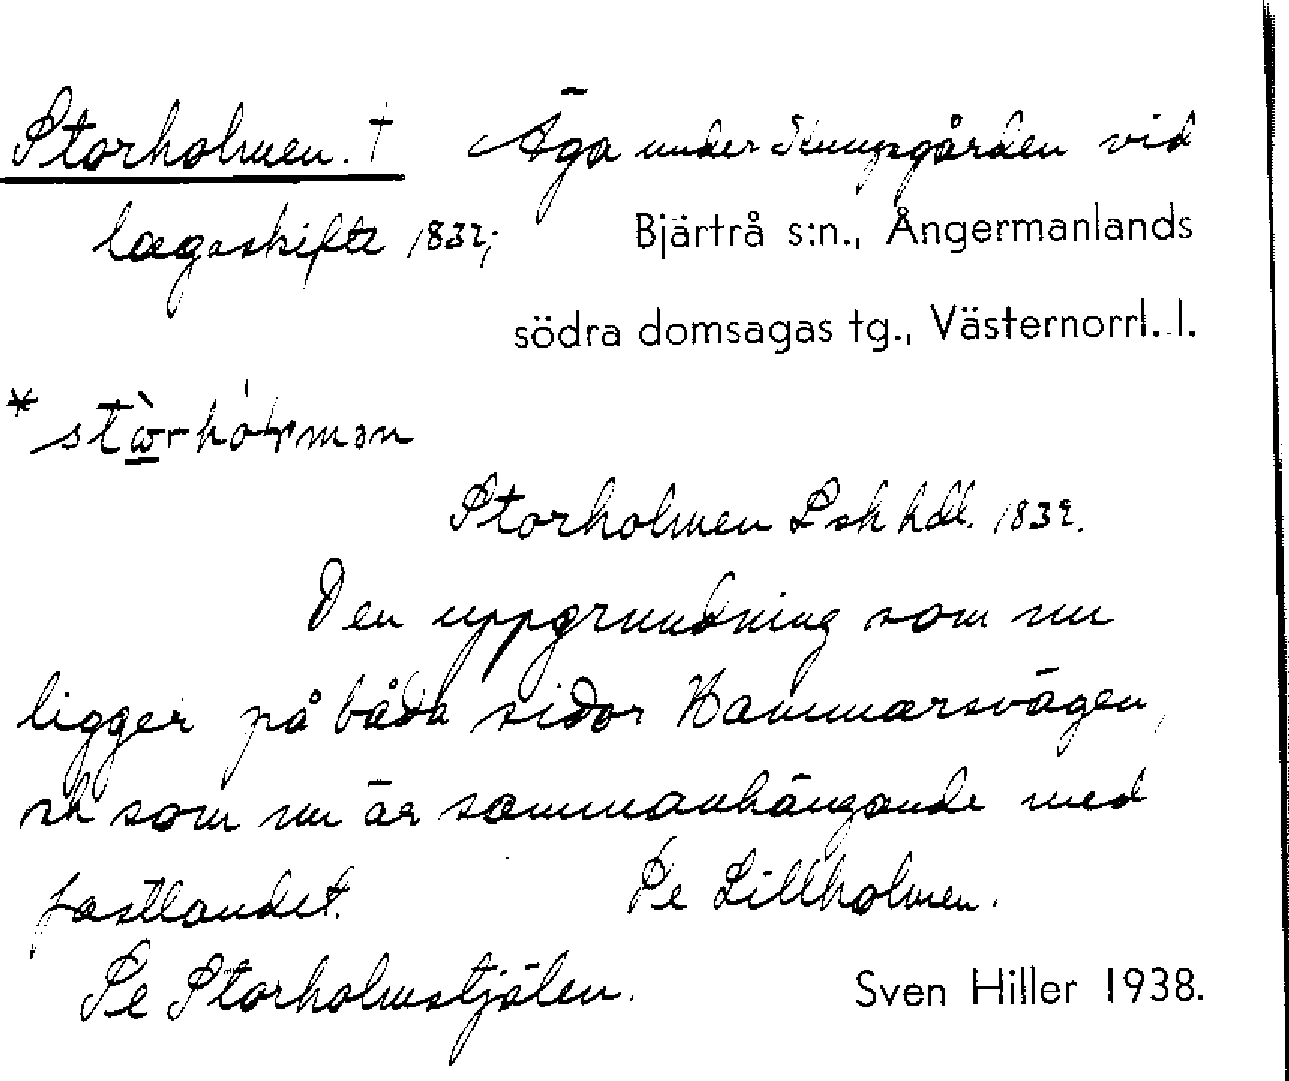 Storholmen. † Äga under Kungsgården vid
lagaskifte 1832;
Bjärtrå s:n., Ångermanlands
södra domsagas tg., Västernorrl. l.
Storholmen Lsk hdl. 1832.
Den uppgrundning som nu
ligger på båda sidor Hammarsvägen,
och som nu är sammanhängande med
fastlandet. Se Lillholmen.
Se Storholmstjälen.
Sven Hiller 1938.